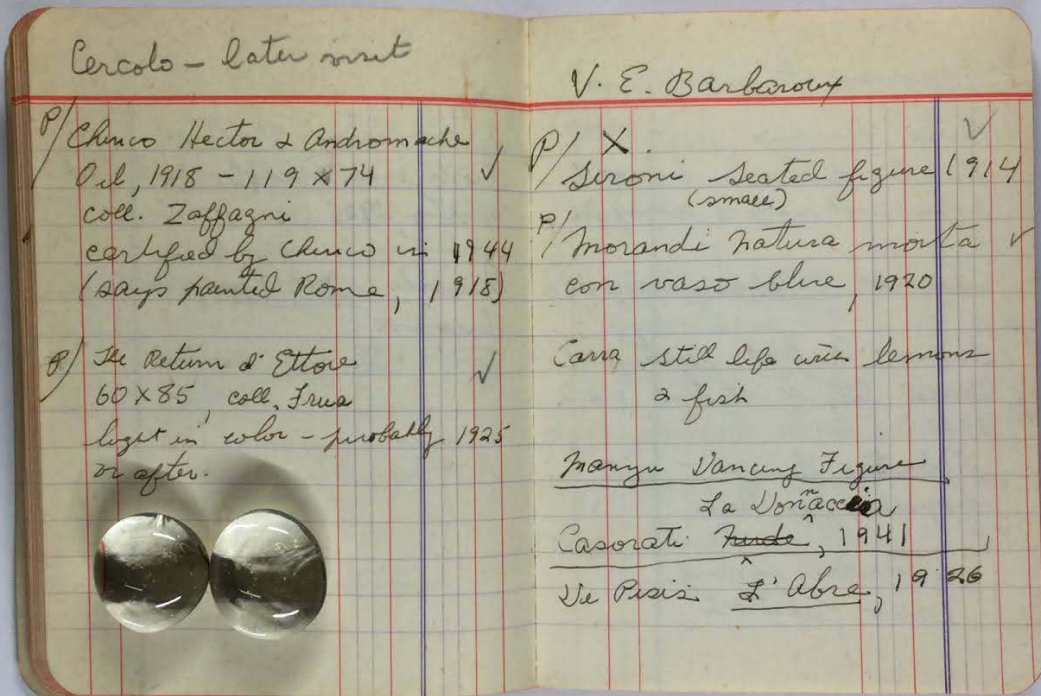 Cercolo - later visit
P/ Chirico Hector & Andromache
Oil, 1918 - 119 x 74 ✓
coll. Zaffagni
certified by Chirico in 1944
(says painted Rome, 1918)
P/ The Return d'Ettore
60 X 85, coll. Frua ✓
light in color - probably 1925
or after.
V. E. Barbaroux
P/ X. ✓
Sironi seated figure 1914
(small)
P/ Morandi natura morta ✓
con vaso blue, 1920
Carra still life with lemons
& fish
Manzu Dancing Figure
La Donnaccia
Casorati Nude, 1941
De Pisis L'Abre, 1926